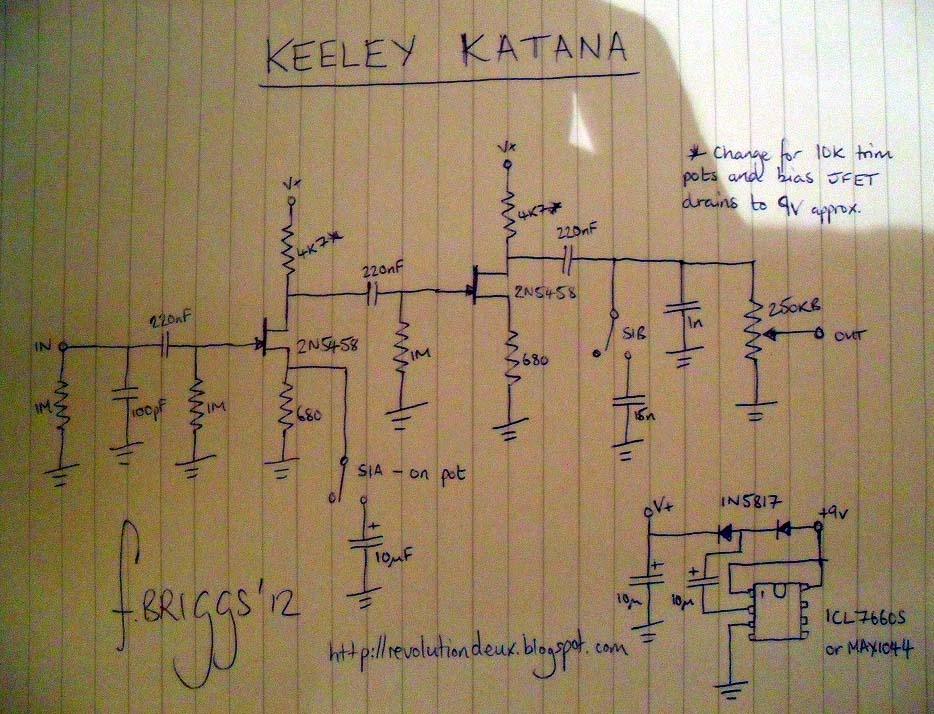 KEELEY KATANA
Vx
* Change for 10K trim
pots and bias JFET
drains to 9V approx.
Vx
4K7*
220nF
4K7*
220nF
2N5458
250KB
1n
S1B
OUT
220nF
IN
2N5458
1M
680
1M
100pF
1M
680
15n
S1A - on pot
1N5817
V+
+9V
+
10µF
+
10µ
+
10µ
1
ICL7660S
or MAX1044
f.BRIGGS'12
http://revolutiondeux.blogspot.com